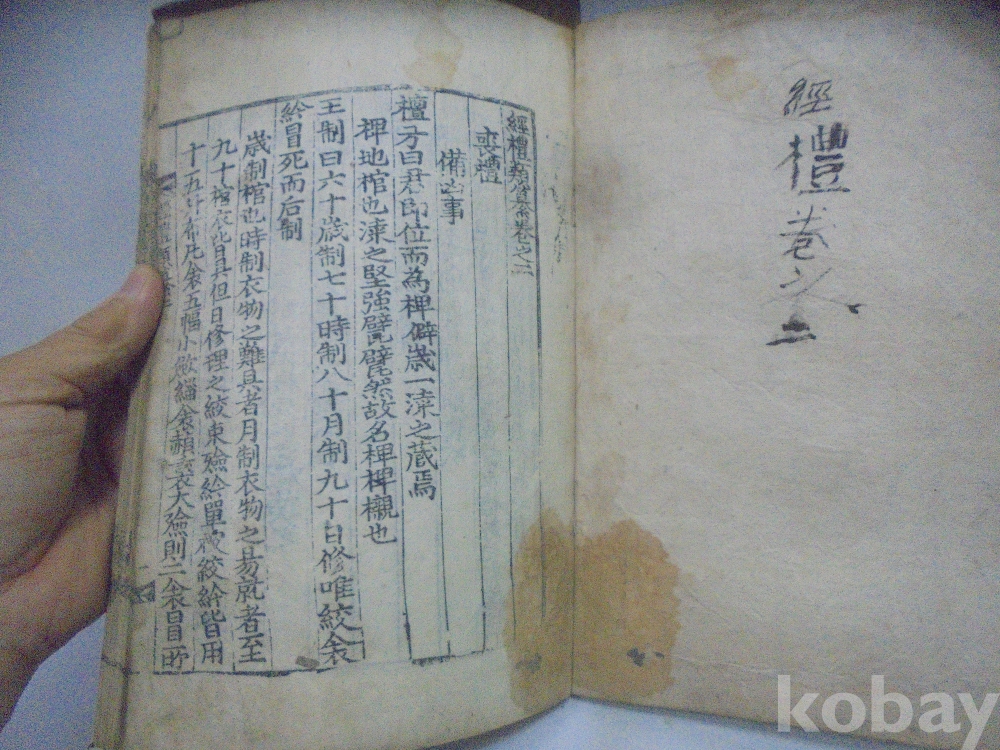 經禮卷之二
經禮類纂卷之二
喪禮
備凶事
檀弓曰君即位而為椑僻歲一漆之藏焉
椑地棺也漆之堅強甓甓然故名椑椑櫬也
王制曰六十歲制七十時制八十月制九十日修唯絞衾
紟冒死而后制
歲制棺也時制衣物之難具者月制衣物之易就者至
九十棺衣皆具但日修理之絞束殮紟單被絞紟皆用
十五升布凡衾五幅小歛緇衾赬裏大殮則二衾冒所
kobay